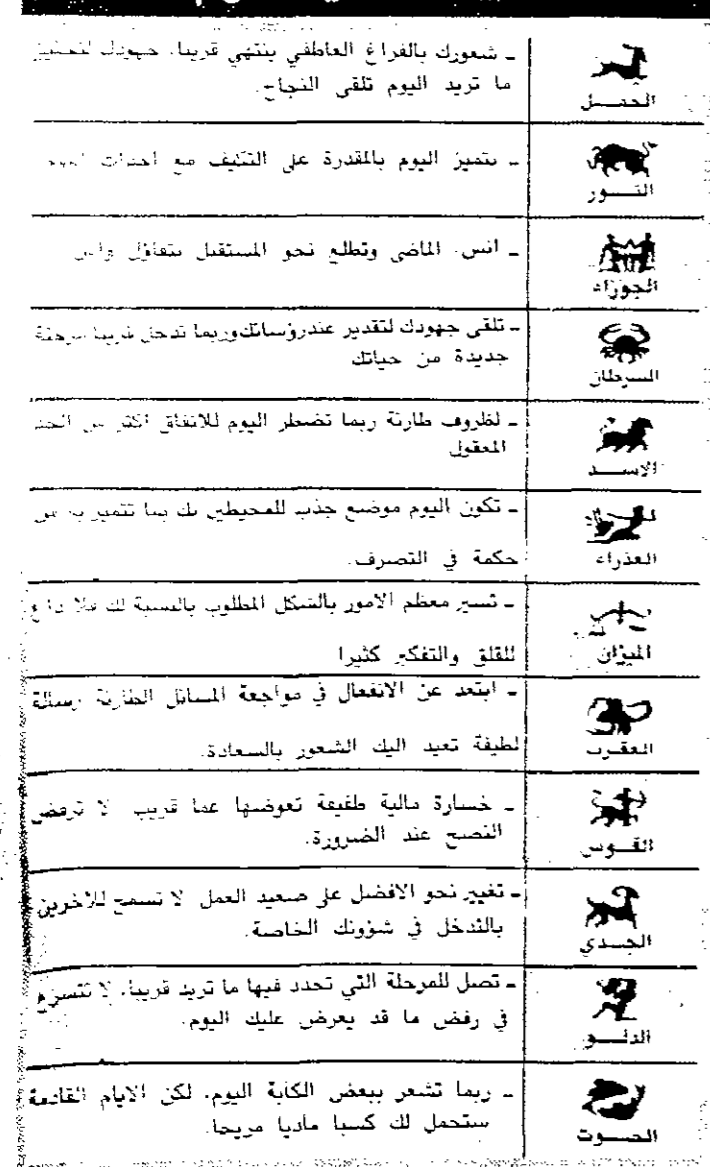 الحمـــل
ـ شعورك بالفراغ العاطفي ينتهي قريبا. جهودك لتحقيق
ما تريد اليوم تلقى النجاح.
الثـــور
ـ تتميز اليوم بالمقدرة على التكيف مع احداث
الجوزاء
ـ انس. الماضي وتطلع نحو المستقبل بتفاؤل
السرطان
ـ تلقى جهودك لتقدير عندرؤسائك وربما تدخل قريبا مرحلة
جديدة من حياتك
الاســـد
ـ لظروف طارئة ربما تضطر اليوم للانفاق اكثر من الحد
المعقول
العذراء
ـ تكون اليوم موضع جذب للمحيطين بك بما تتميز به من
حكمة في التصرف.
الميزان
ـ تسير معظم الامور بالشكل المطلوب بالنسبة لك فلا داع
للقلق والتفكير كثيرا
العقـرب
ـ ابتعد عن الانفعال في مواجهة المسائل الطارئة رسالة
لطيفة تعيد اليك الشعور بالسعادة.
القــوس
ـ خسارة مالية طفيفة تعوضها عما قريب لا ترفض
النصح عند الضرورة.
الجــدي
ـ تغيير نحو الافضل على صعيد العمل لا تسمح للآخرين
بالتدخل في شؤونك الخاصة.
الدلـــو
ـ تصل للمرحلة التي تحدد فيها ما تريد قريبا. لا تتسرع
في رفض ما قد يعرض عليك اليوم.
الحـــوت
ـ ربما تشعر ببعض الكآبة اليوم. لكن الايام القادمة
ستحمل لك كسبا ماديا مريحا.